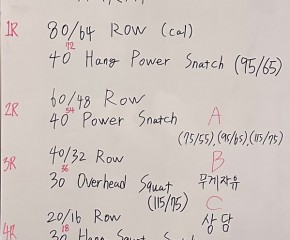 1R 80/64 Row (cal)
72
40 Hang Power Snatch (95/65)
2R 60/48 Row
54
40 Power Snatch A
(75/55), (95/65), (115/75)
3R 40/32 Row B
36
30 Overhead Squat 무게자유
(115/75) C
20/16 Row 상담
4R 18
30 Hang Squat